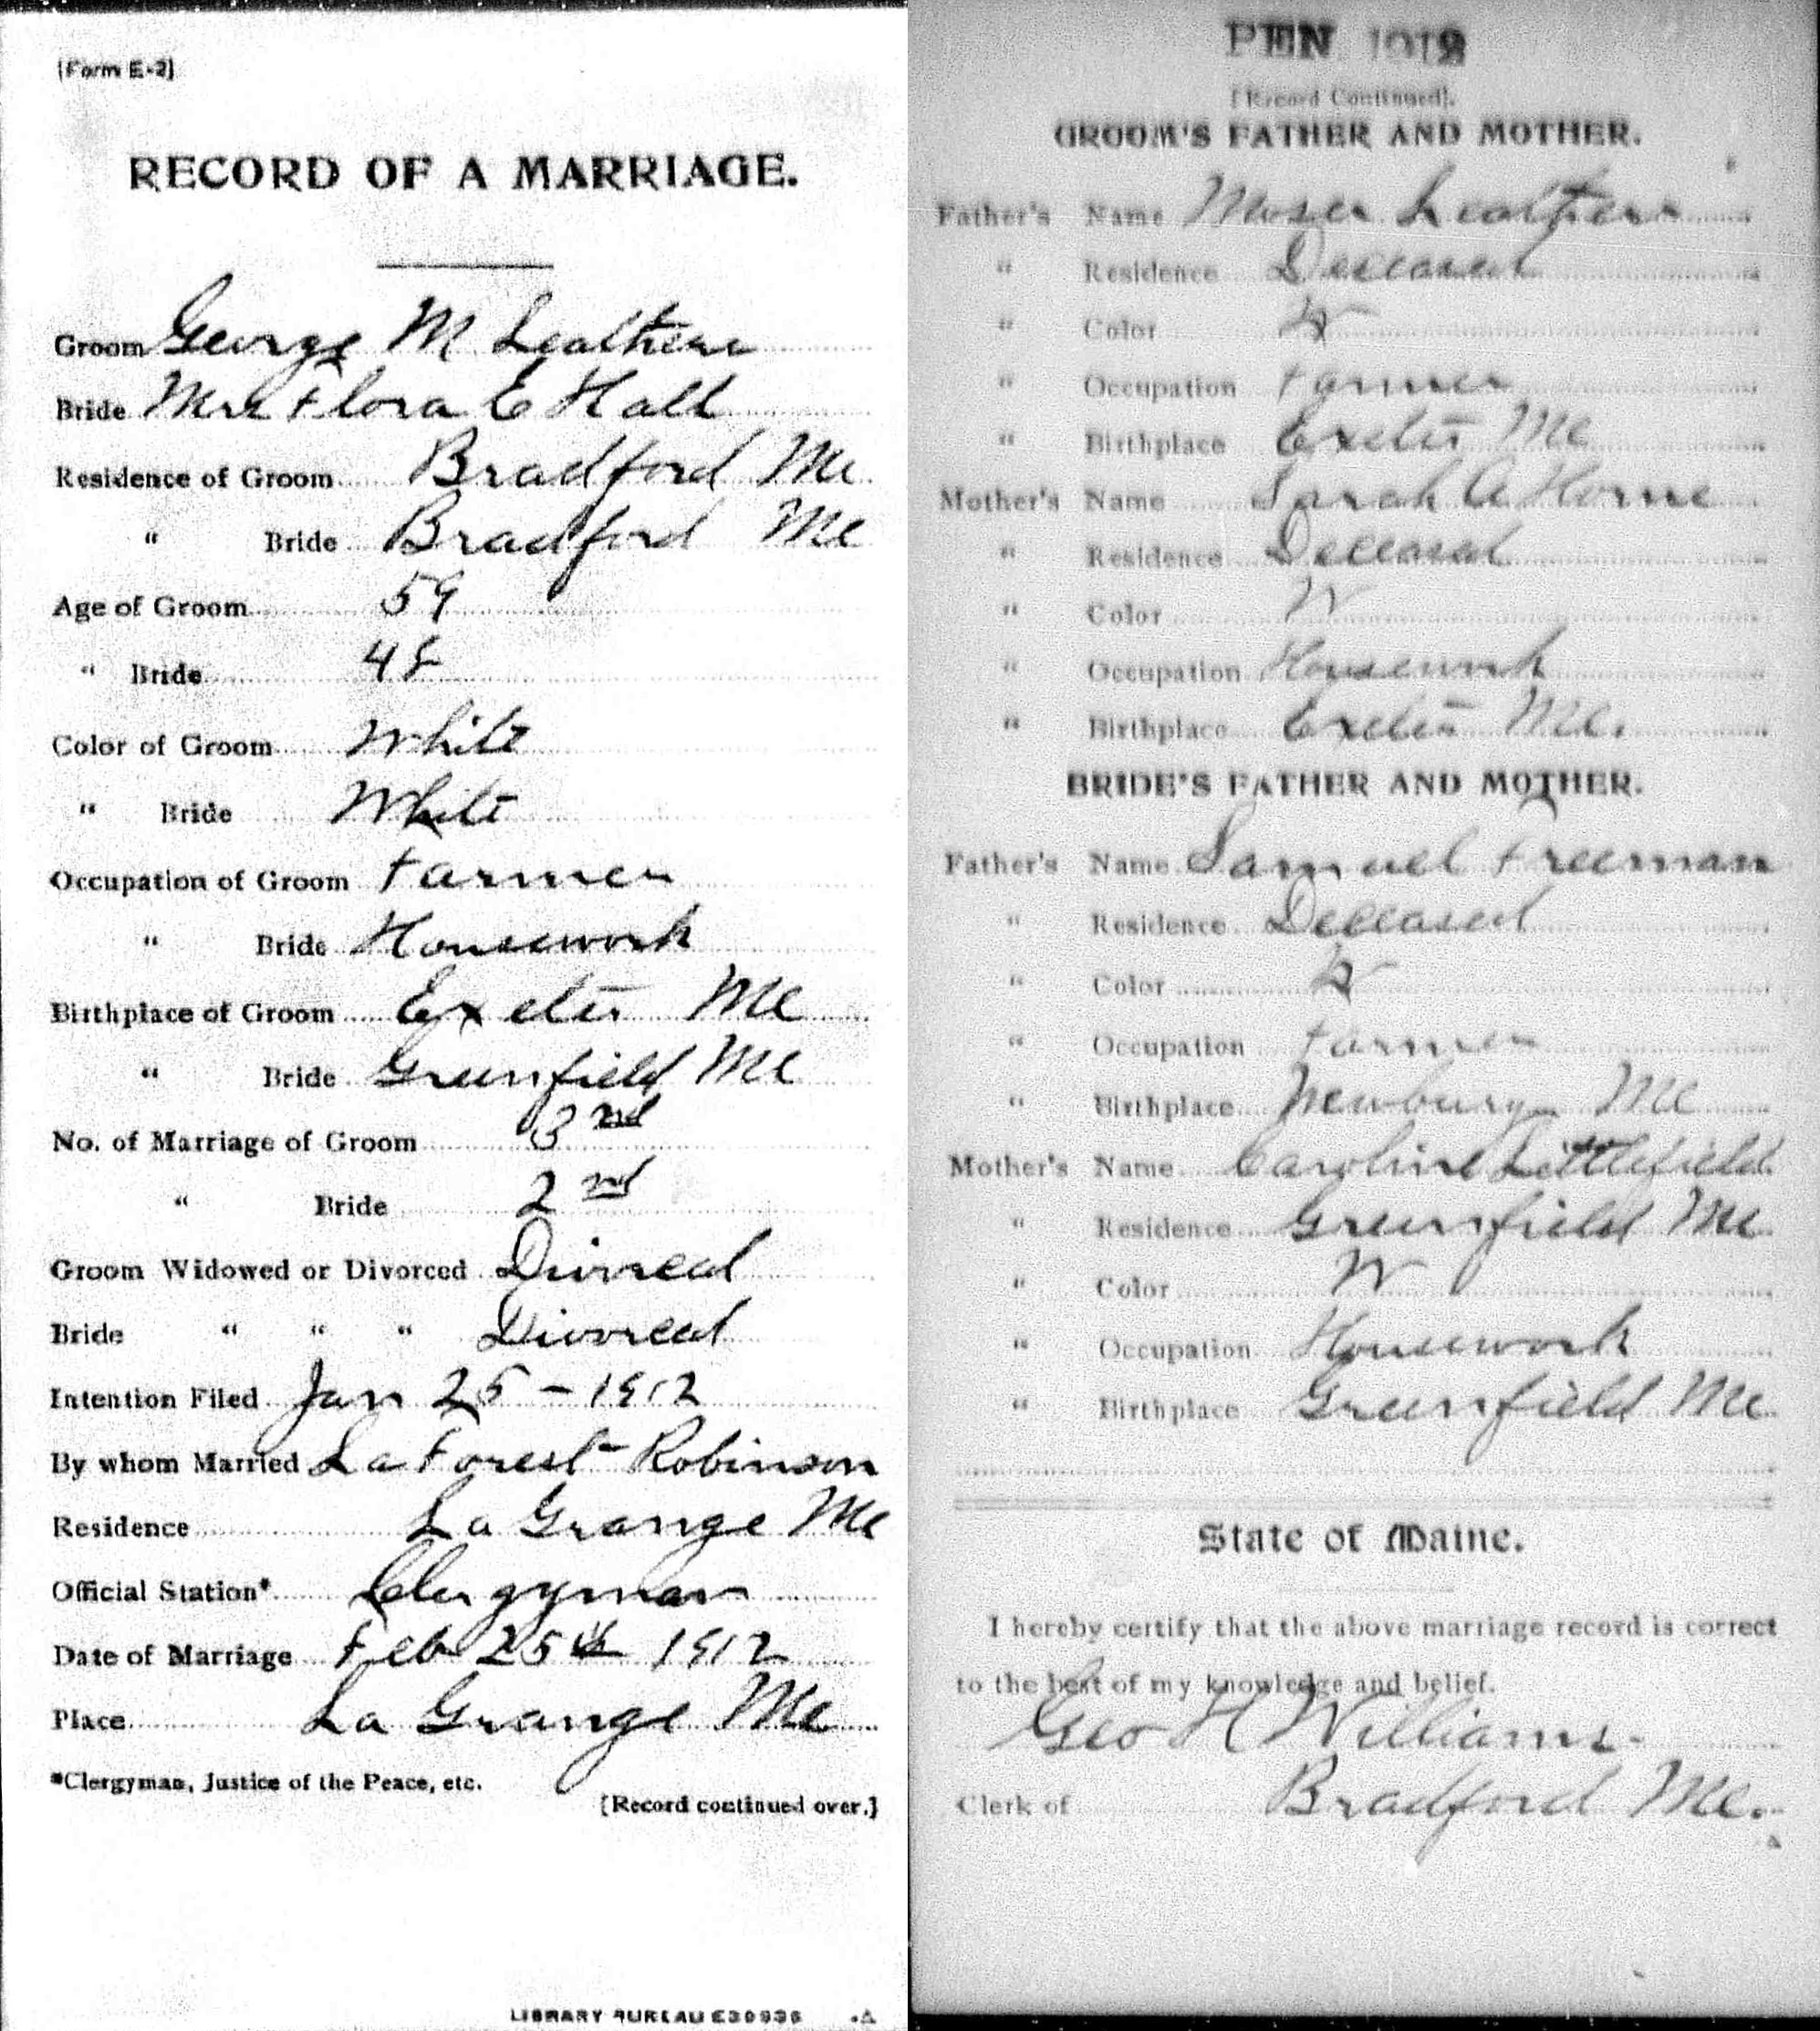 [Form E-2]
RECORD OF A MARRIAGE.
Groom George M Leathers
Bride Mrs Flora E Hall
Residence of Groom Bradford Me
" Bride Bradford Me
Age of Groom 59
" Bride 48
Color of Groom White
" Bride White
Occupation of Groom Farmer
" Bride Housework
Birthplace of Groom Exeter Me
" Bride Greenfield Me
No. of Marriage of Groom 3 nd
" Bride 2 nd
Groom Widowed or Divorced Divorced
Bride " " " Divorced
Intention Filed Jan 25 - 1912
By whom Married La Forest Robinson
Residence La Grange Me
Official Station* Clergyman
Date of Marriage Feb 25th 1912
Place La Grange Me
*Clergyman, Justice of the Peace, etc.
[Record continued over.]
LIBRARY BUREAU E30936
PEN 1912
[Record Continued].
GROOM'S FATHER AND MOTHER.
Father's Name Moses Leathers
" Residence Deceased
" Color W
" Occupation Farmer
" Birthplace Exeter Me
Mother's Name Sarah A Horne
" Residence Deceased
" Color W
" Occupation Housework
" Birthplace Exeter Me.
BRIDE'S FATHER AND MOTHER.
Father's Name Samuel Freeman
" Residence Deceased
" Color W
" Occupation Farmer
" Birthplace Newburg Me
Mother's Name Caroline Littlefield
" Residence Greenfield Me
" Color W
" Occupation Housework
" Birthplace Greenfield Me
State of Maine.
I hereby certify that the above marriage record is correct
to the best of my knowledge and belief.
Geo H Williams.
Clerk of Bradford Me.